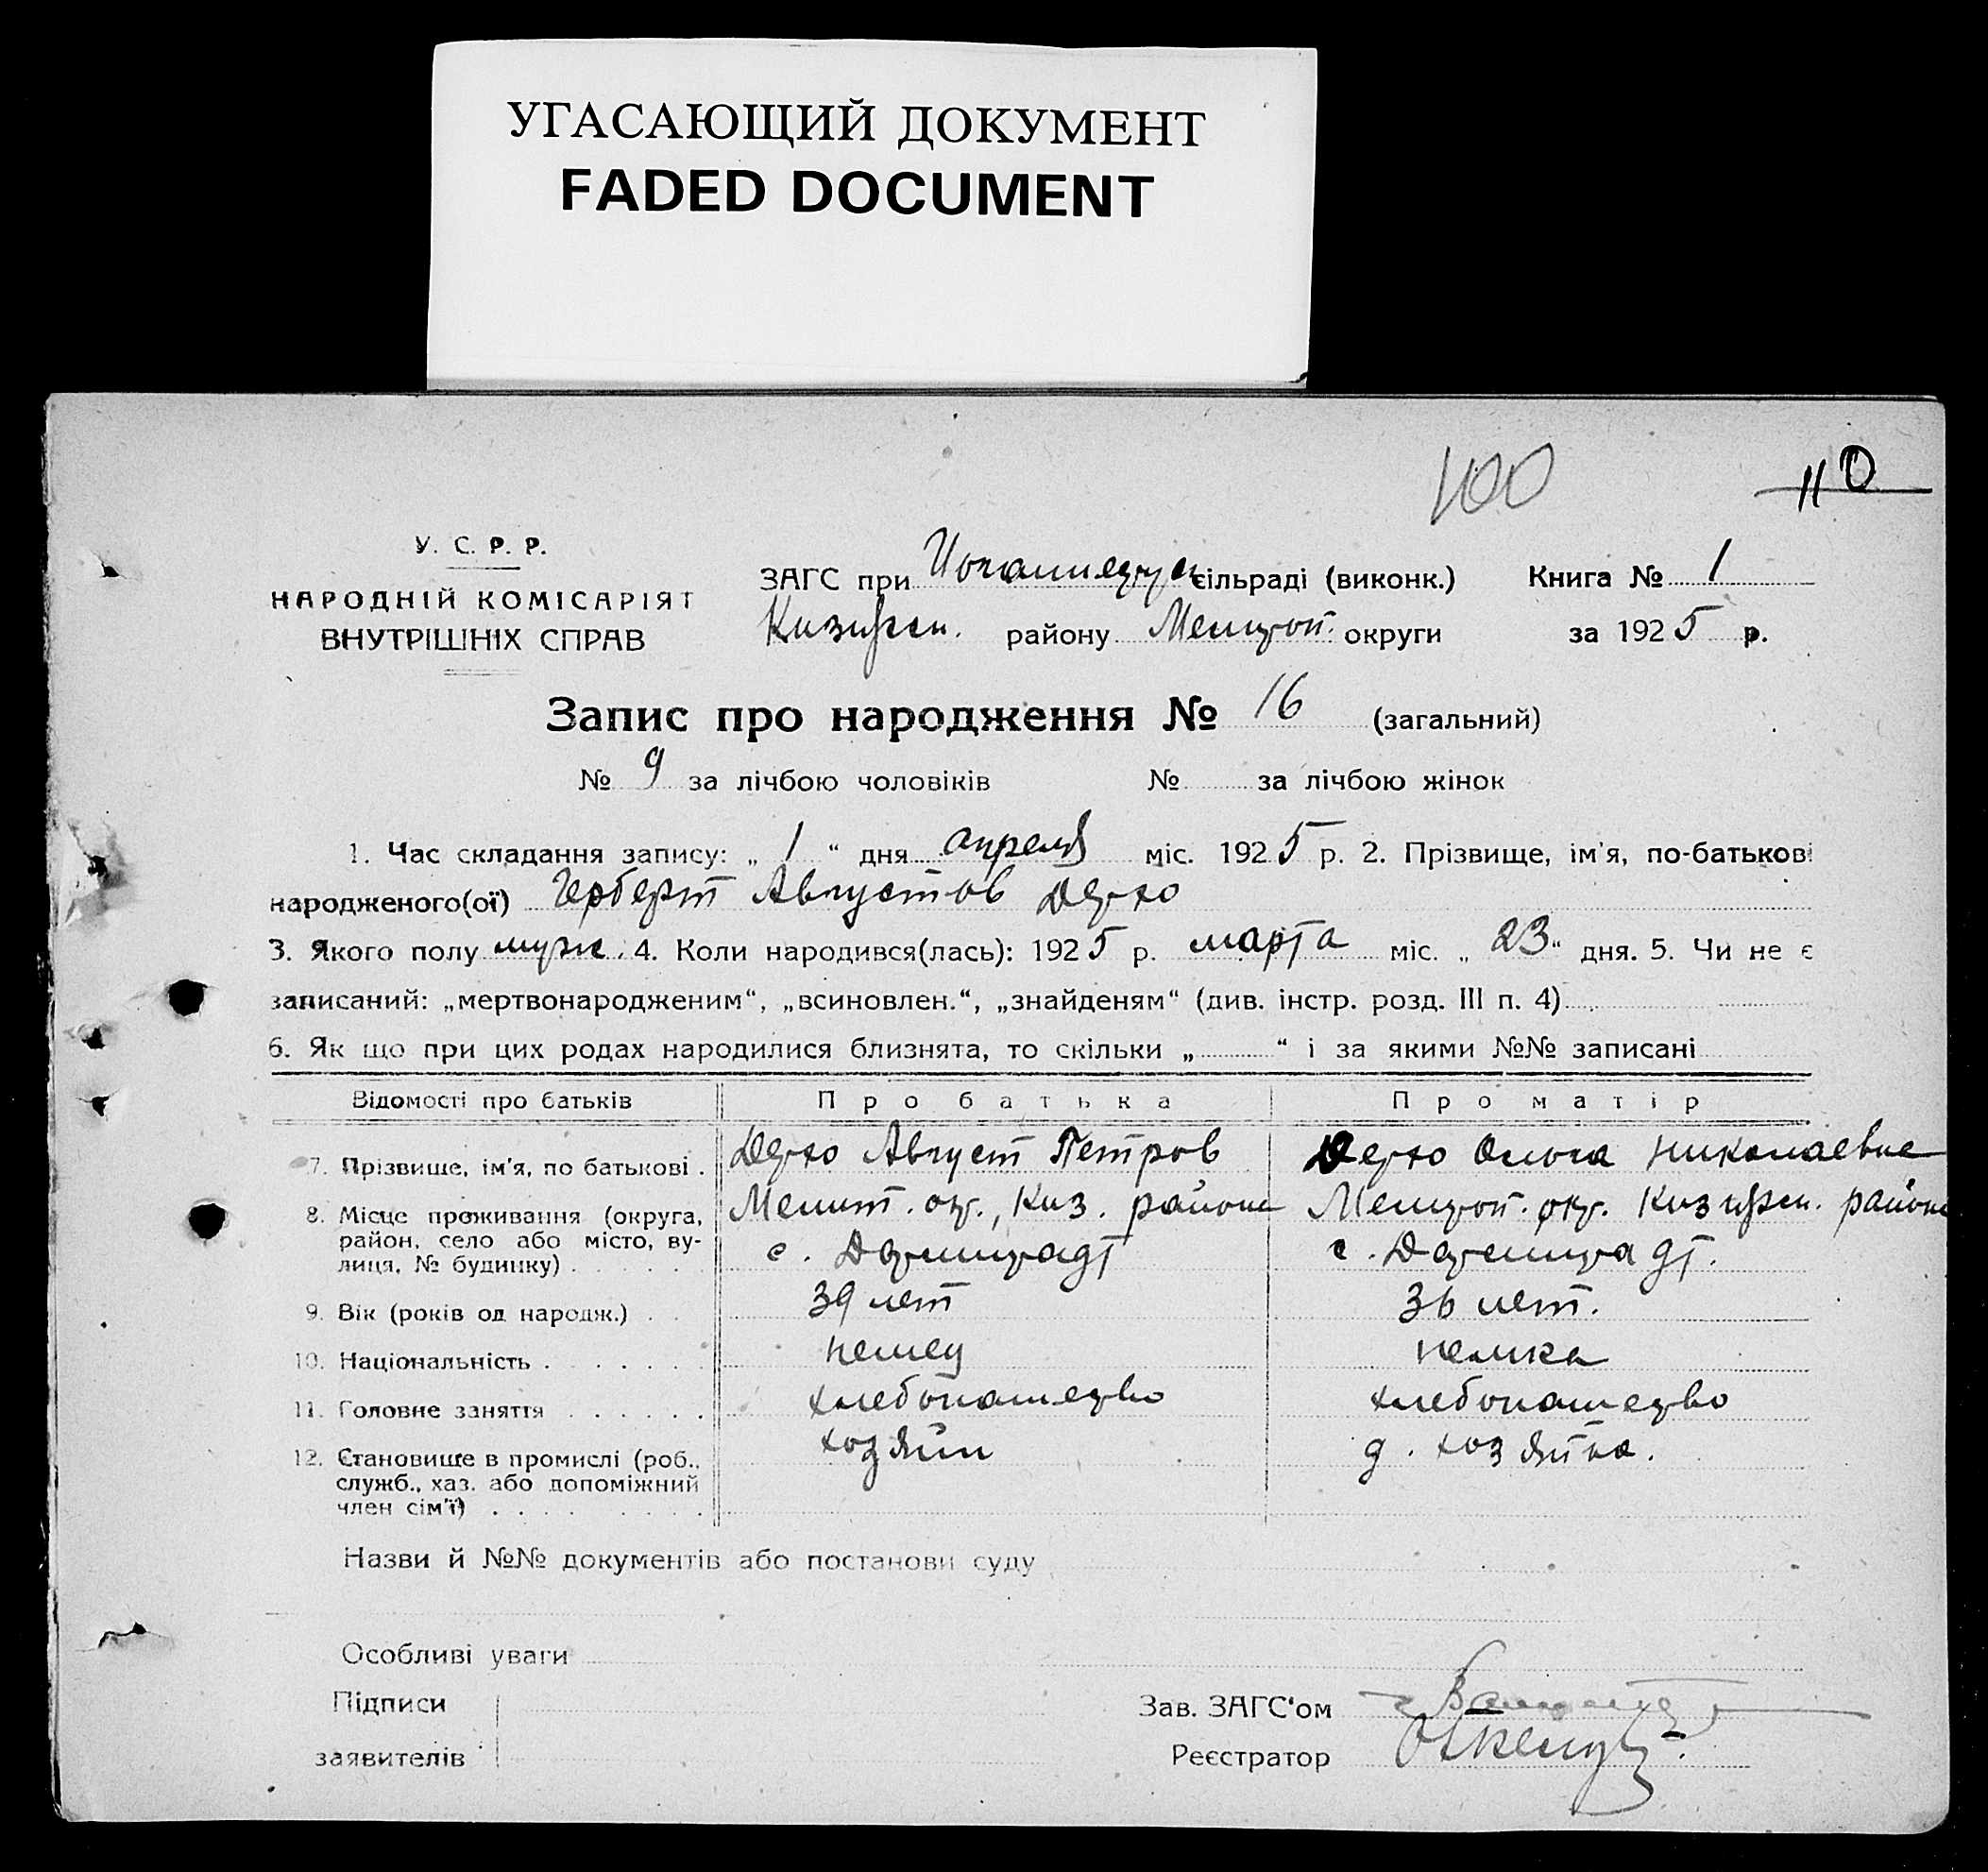 УГАСАЮЩИЙ ДОКУМЕНТ
FADED DOCUMENT
100
110
У. С. Р. Р.
НАРОДНІЙ КОМІСАРІЯТ
ВНУТРІШНІХ СПРАВ
ЗАГС при сільраді (виконк.) Книга № 1
району Мелитоп. округи за 1925 р.
Запис про народження № 16 (загальний)
№ 9 за лічбою чоловіків № за лічбою жінок
1. Час складання запису: „ 1 “ дня апреля міс. 1925 р. 2. Прізвище, ім'я, по-батькові
народженого(ої) Герберт Августов
3. Якого полу муж. 4. Коли народився(лась): 1925 р. марта міс. „ 23 “ дня. 5. Чи не є
записаний: „мертвонародженим“, „всиновлен.“, „знайденям“ (див. інстр. розд. III п. 4)
6. Як що при цих родах народилися близнята, то скільки „ “ і за якими №№ записані
Відомості про батьків Про батька Про матір
7. Прізвище, ім'я, по батькові . Август Петров Ольга Николаевна
8. Місце проживання (округа, район, село або місто, вулиця, № будинку) Мелит. окр., Киз. района Мелитоп. окр. района
с. с.
9. Вік (років од народж.) . . 39 лет 36 лет.
10. Національність . . . . . . немец немка
11. Головне заняття . . . . . . хлебопашество хлебопашество
12. Становище в промислі (роб., служб., хаз. або допоміжний член сім'ї) хозяин д. хозяйка.
Назви й №№ документів або постанови суду
Особливі уваги
Підписи
заявителів
Зав. ЗАГС'ом
Реєстратор